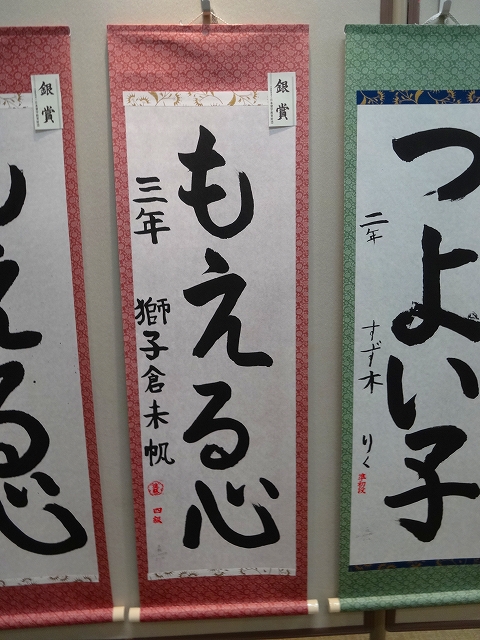 つよい子
二年
すず木 りく
準初段
銀賞
もえる心
三年
獅子倉未帆
四級
銀賞
もえる心